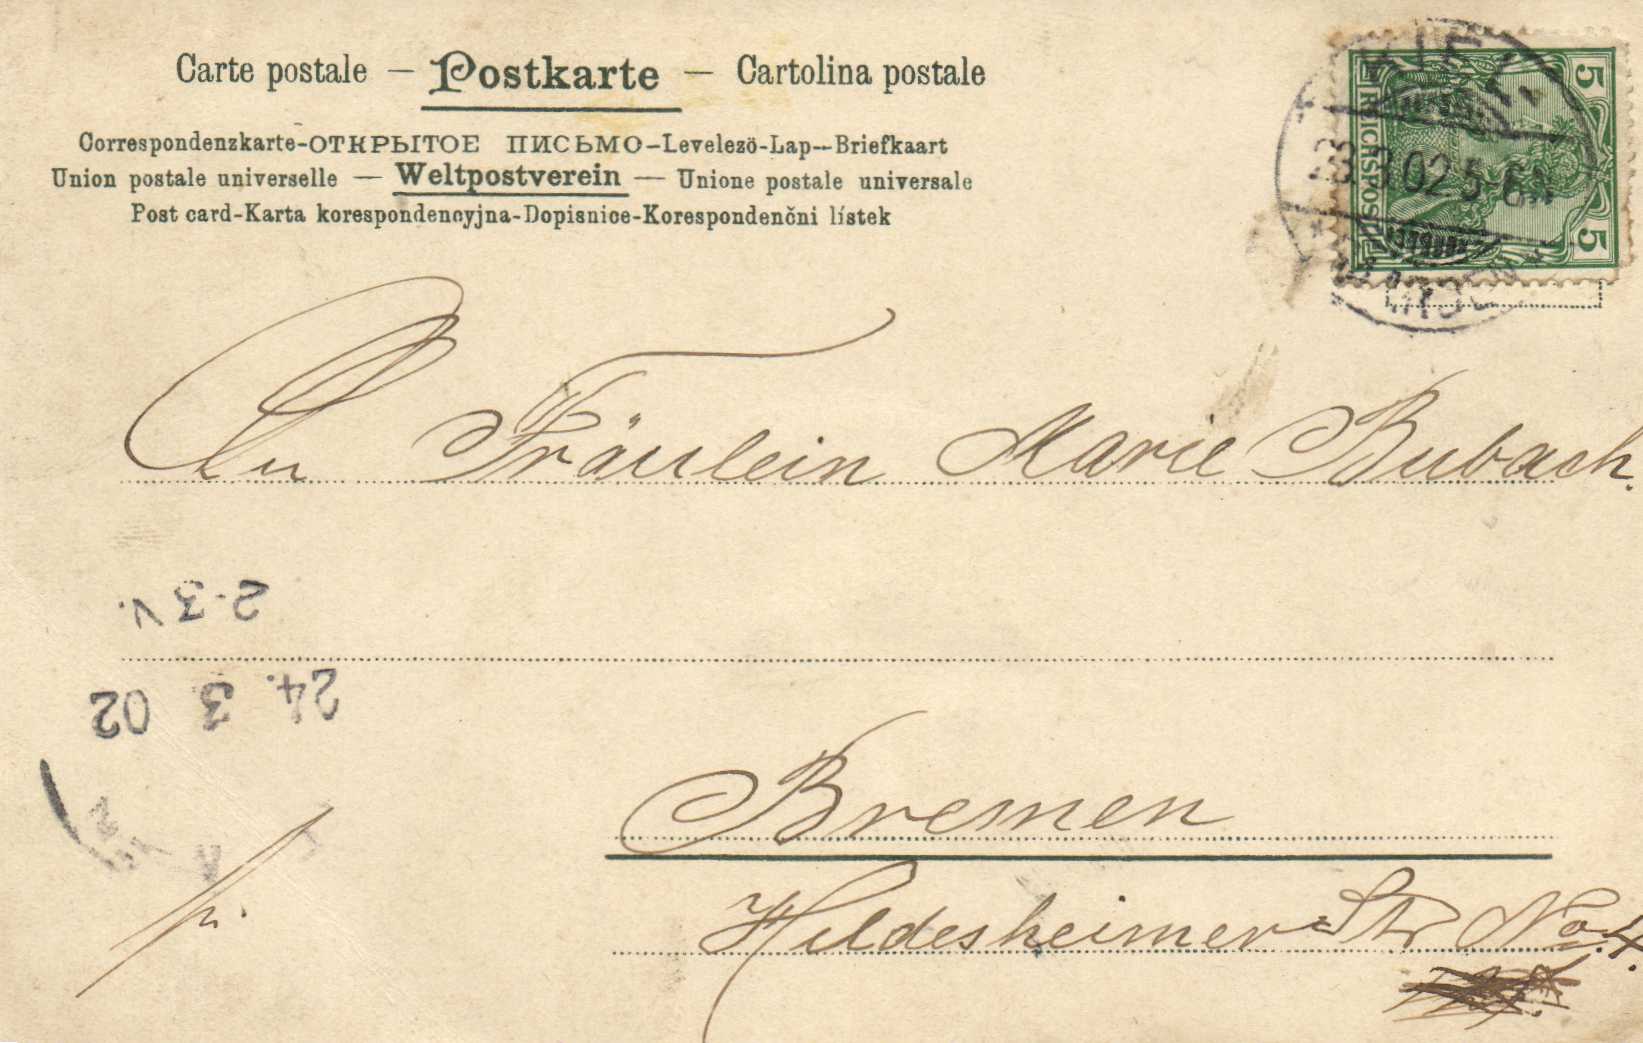 Carte postale – Postkarte – Cartolina postale
Correspondenzkarte-ОТКРЫТОЕ ПИСЬМО-Levelezö-Lap--Briefkaart
Union postale universelle — Weltpostverein — Unione postale universale
Post card-Karta korespondencyjna-Dopisnice-Korespondenčni lístek
KIEL
3.02 5-6N
5
REICHSPOST
5
An Fräulein Marie Bubach.
2-3V.
24. 3 02
Bremen
Hildesheimer Str No. 4.